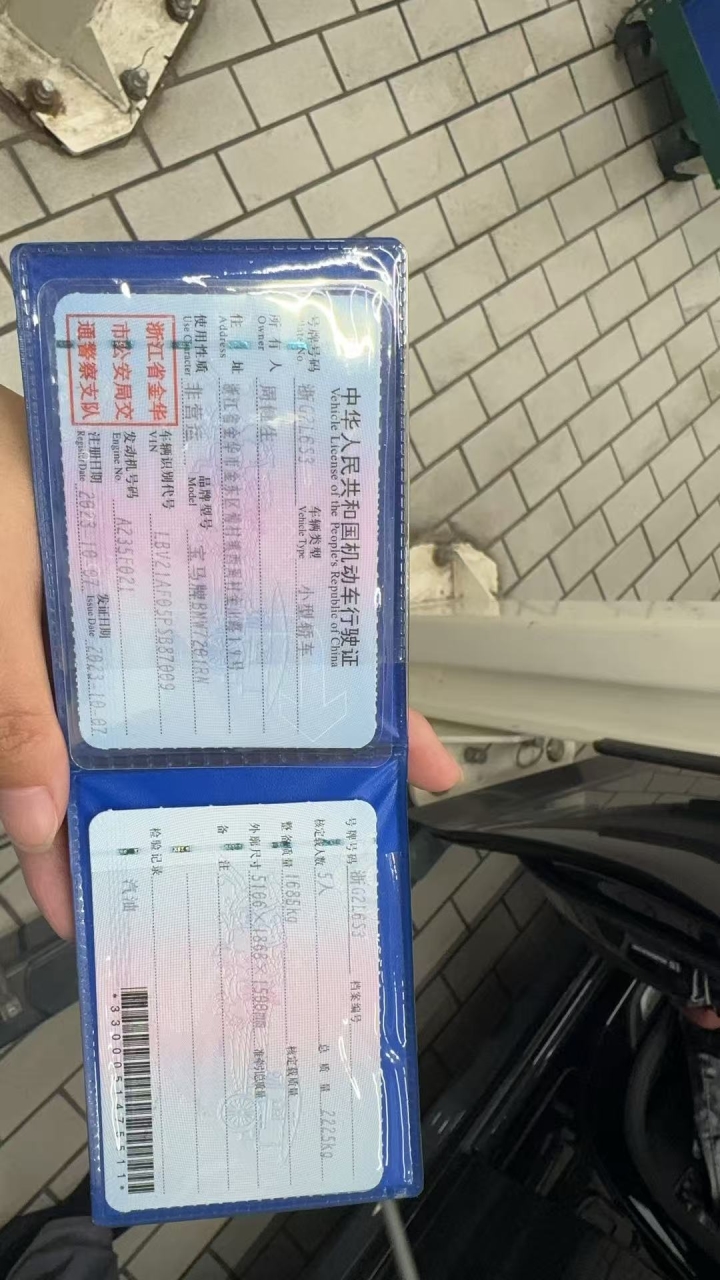 中华人民共和国机动车行驶证
Vehicle License of the People's Republic of China
号牌号码 浙G2L6S3 车辆类型 小型轿车
Plate No. Vehicle Type
所有人
Owner
住址
Address
使用性质 非营运 品牌型号 宝马牌BMW7201RN
Use Character Model
浙江省金华
市公安局交
通警察支队
车辆识别代号
VIN
发动机号码 A235F021
Engine No.
注册日期 2023-10-07 发证日期 2023-10-07
Register Date Issue Date
号牌号码 浙G2L6S3 档案编号
核定载人数 5人 总质量 2225kg
整备质量 1685kg 核定载质量
外廓尺寸 5106×1868×1500mm 准牵引总质量
备注
检验记录
汽油
*3300051475511*